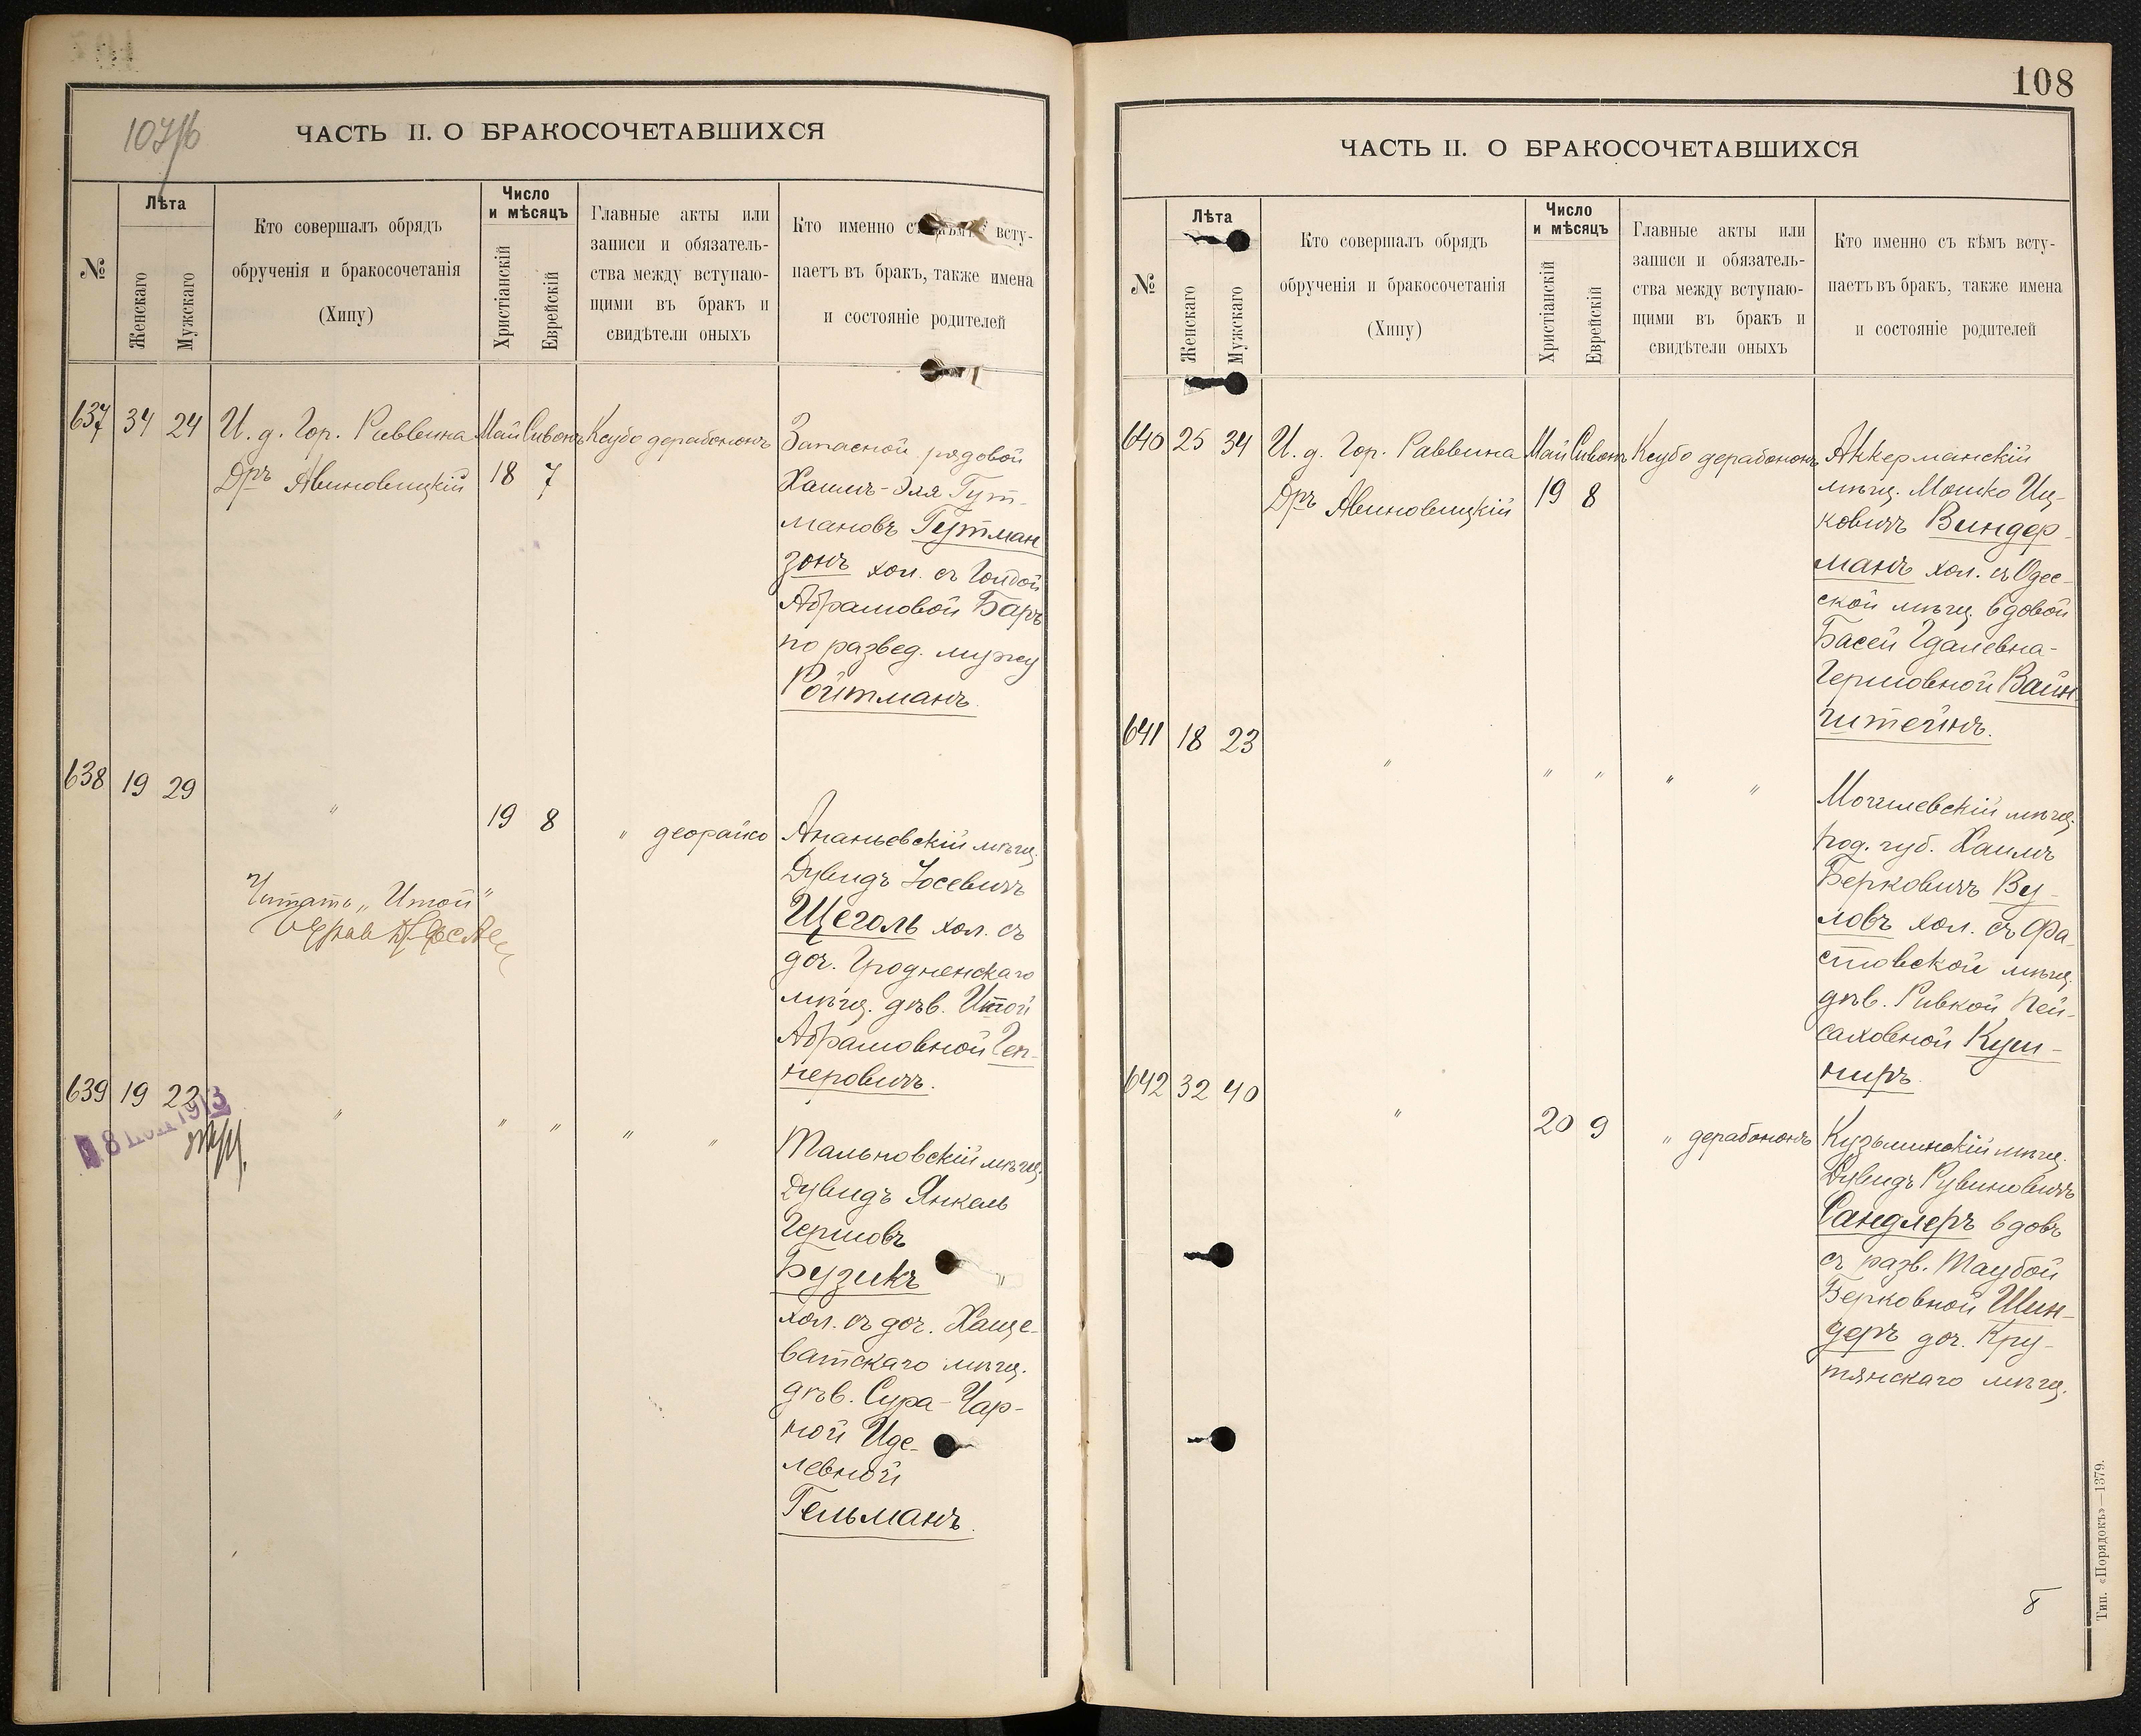 107/б
ЧАСТЬ II. О БРАКОСОЧЕТАВШИХСЯ
№
Лѣта
Женскаго
Мужскаго
Кто совершалъ обрядъ
обрученія и бракосочетанія
(Хипу)
Число
и мѣсяцъ
Христіанскій
Еврейскій
Главные акты или
записи и обязатель-
ства между вступаю-
щими въ бракъ и
свидѣтели оныхъ
Кто именно съ кѣмъ всту-
паетъ въ бракъ, также имена
и состояніе родителей
637 34 24 И. д. Гор. Раввина Май Сивонъ Ксубо дерабононъ
Дръ Авиновицкій 18 7
Запасной рядовой
Хаимъ-Эля Гут-
мановъ Гутман
зонъ хол. съ Голдой
Абрамовой Баръ
по развед. мужу
Ройтманъ.
638 19 29 " 19 8 " деорайсо
Ананьевскій мѣщ.
Дувидъ Іосевичъ
Щеголь хол. съ
доч. Гродненскаго
мѣщ. дѣв. Итой
Абрамовной Геп-
неровичъ.
Читать „Итой"
639 19 22 " " " " "
Тальновскій мѣщ.
Дувидъ Янкель
Гершовъ
Бузикъ
хол. съ доч. Хаще-
ватскаго мѣщ.
дѣв. Сура-Чар-
ной Иде-
левной
Гельманъ.
1913
108
ЧАСТЬ II. О БРАКОСОЧЕТАВШИХСЯ
№
Лѣта
Женскаго
Мужскаго
Кто совершалъ обрядъ
обрученія и бракосочетанія
(Хипу)
Число
и мѣсяцъ
Христіанскій
Еврейскій
Главные акты или
записи и обязатель-
ства между вступаю-
щими въ бракъ и
свидѣтели оныхъ
Кто именно съ кѣмъ всту-
паетъ въ бракъ, также имена
и состояніе родителей
640 25 34 И. д. Гор. Раввина Май Сивонъ Ксубо дерабононъ
Дръ Авиновицкій 19 8
Аккерманскій
мѣщ. Мошко Иц-
ковичъ Виндер-
манъ хол. съ Одес-
ской мѣщ. вдовой
Басей Гдалевна-
Гершовной Вайн
штейнъ.
641 18 23 " " " " "
Могилевскій мѣщ.
Под. губ. Хаимъ
Берковичъ Ву-
ловъ хол. съ Фа-
стовской мѣщ.
дѣв. Ривкой Пей-
саховной Куш-
ниръ.
642 32 40 " 20 9 " дерабононъ
Кузьминскій мѣщ.
Дувидъ Рувиновичъ
Сандлеръ вдовъ
съ разв. Таубой
Берковной Шин-
деръ доч. Кру-
тянскаго мѣщ.
Тип. «Порядокъ»—1379.